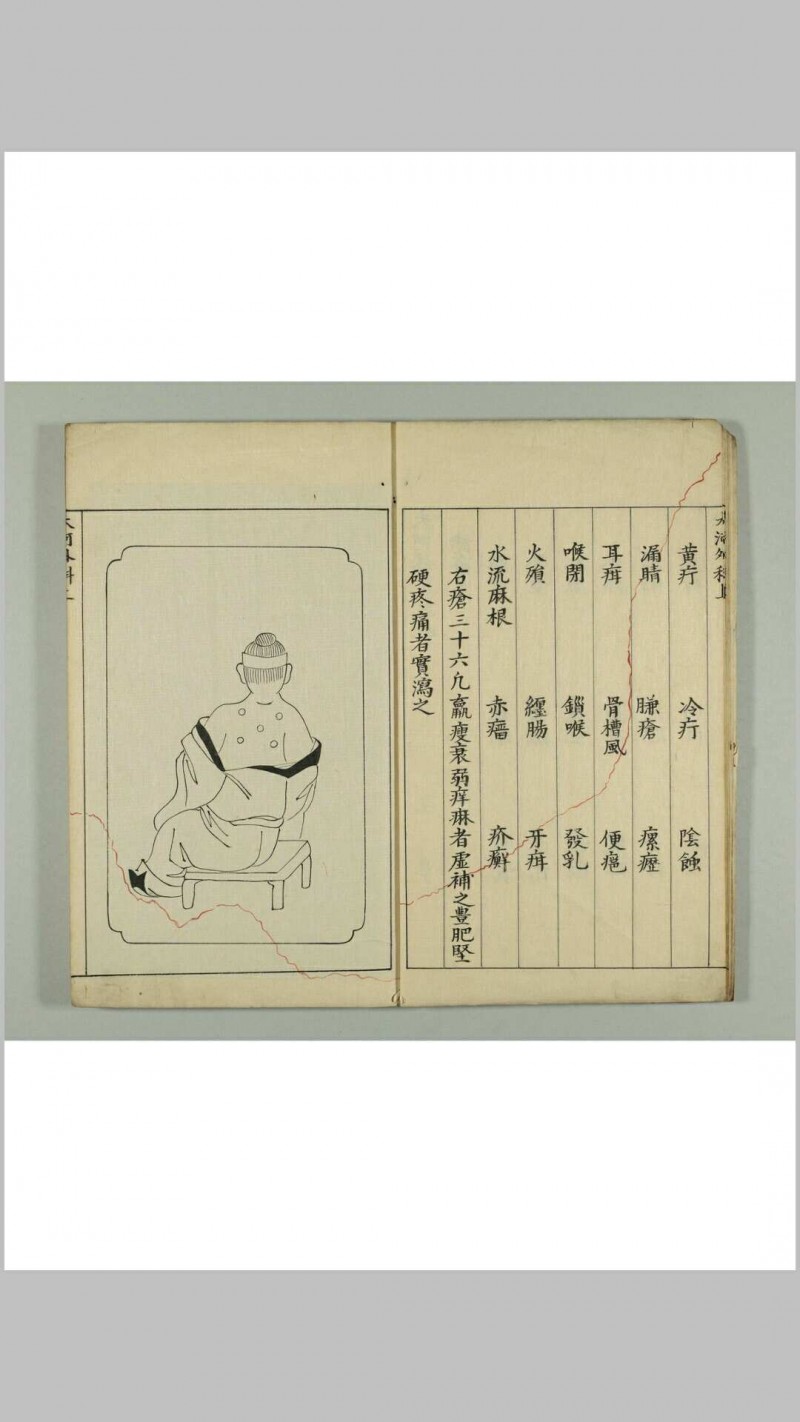 黄疔 冷疔 陰蝕
漏睛 臁瘡 瘰癧
耳疳 骨槽風 便癰
喉閉 鎖喉 發乳
火殞 纏腸 牙疳
水流麻根 赤瘤 疥癬
右瘡三十六凡羸瘦衰弱痒麻者虛補之豊肥堅
硬疼痛者實瀉之